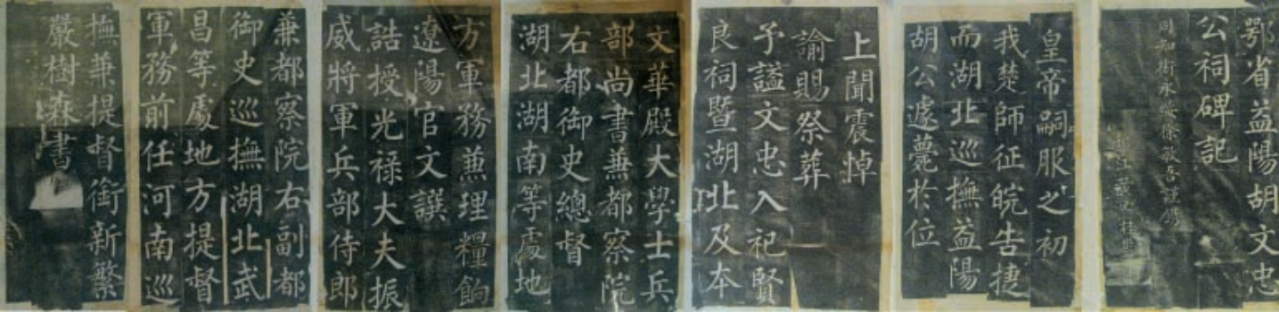 鄂省益陽胡文忠
公祠碑記
同知銜永
皇帝嗣服之初
我楚師征皖告捷
而湖北巡撫益陽
胡公遽薨於位
上聞震悼
諭賜祭葬
予諡文忠入祀賢
良祠暨湖北及本
文華殿大學士兵
部尚書兼都察院
右都御史總督
湖北湖南等處地
方軍務兼理糧餉
遼陽官文譔
誥授光祿大夫振
威將軍兵部侍郎
兼都察院右副都
御史巡撫湖北武
昌等處地方提督
軍務前任河南巡
撫兼提督銜新繁
嚴樹森書